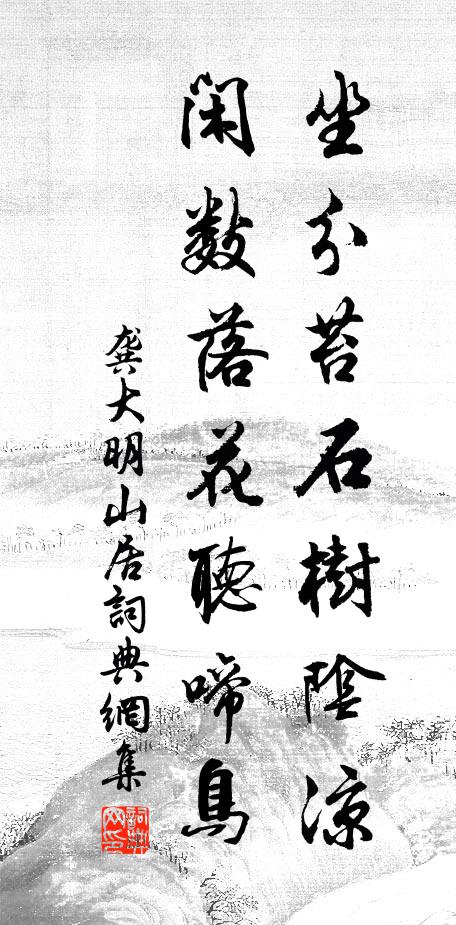 坐分苔石樹陰涼
閑數落花聽啼鳥
龔大明山居詞典網集